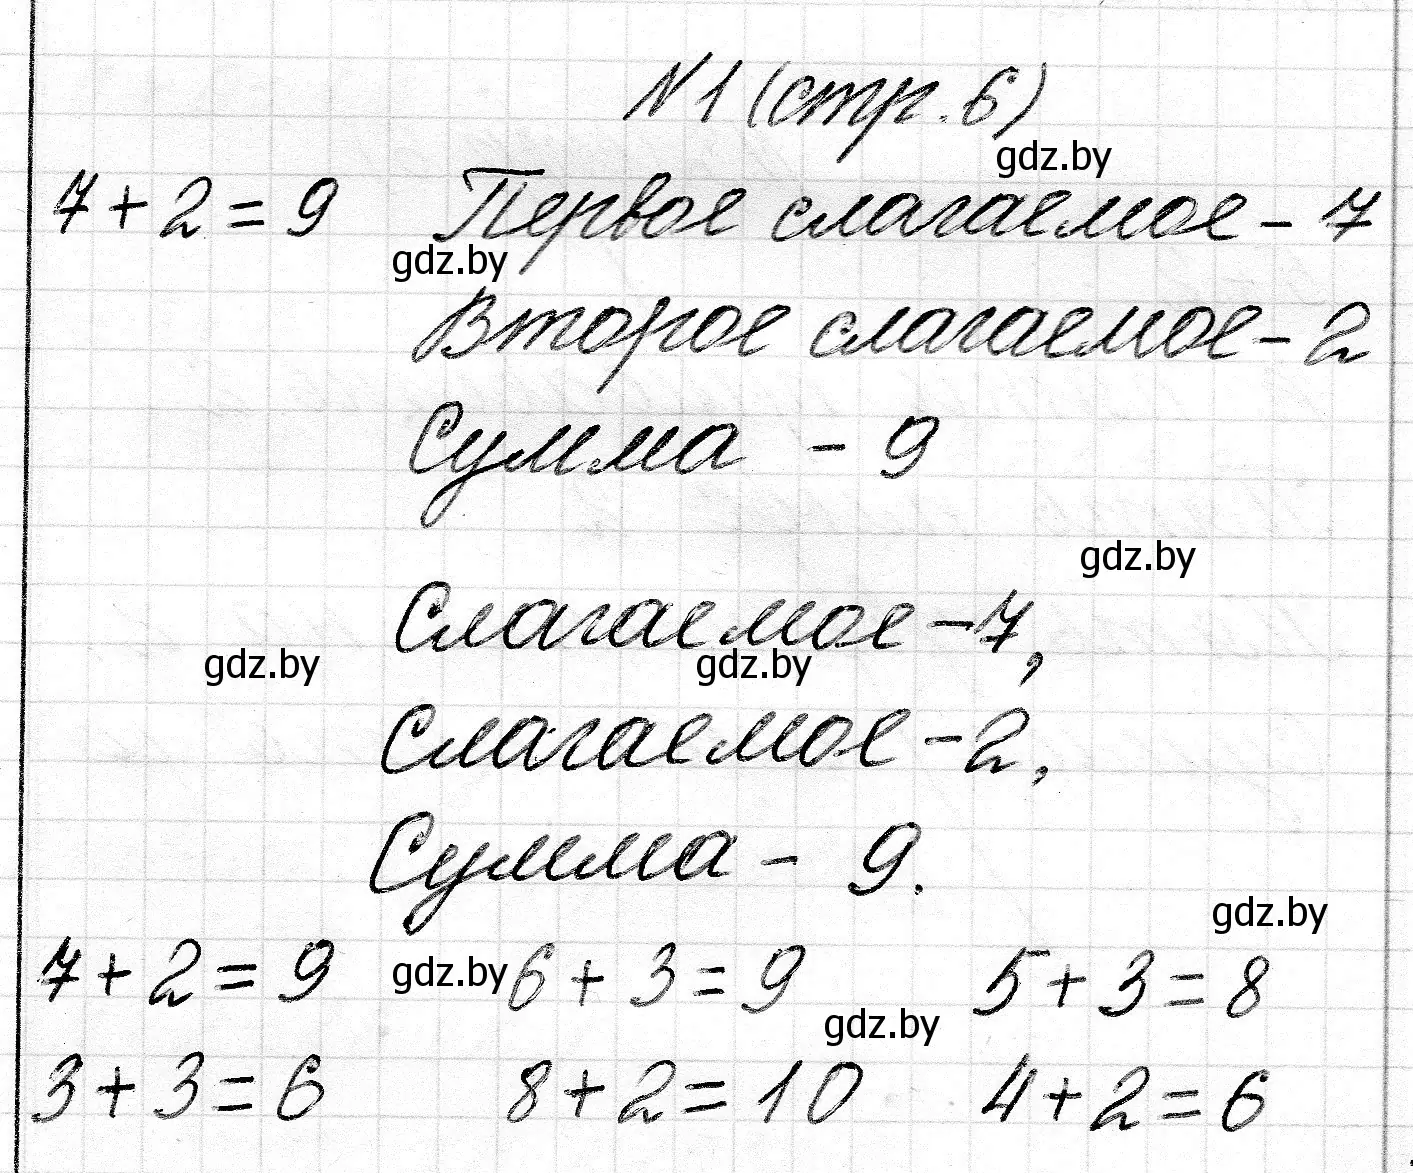 №1 (стр. 6)
gdz.by
7+2=9 Первое слагаемое - 7
gdz.by
Второе слагаемое - 2
Сумма - 9
gdz.by
Слагаемое - 7,
gdz.by gdz.by
Слагаемое - 2,
Сумма - 9.
gdz.by
7+2=9 gdz.by 6+3=9 5+3=8
gdz.by
3+3=6 8+2=10 4+2=6